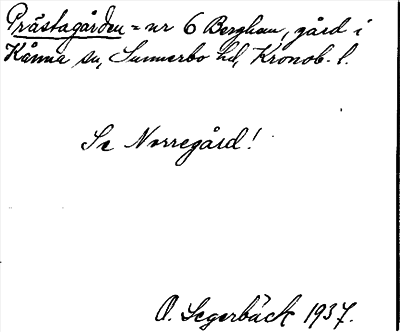 Prästagården = nr 6 Berghem, gård i
Kånna sn, Sunnerbo hd, Kronob. l.
Se Norregård!
O. Segerbäck 1937.